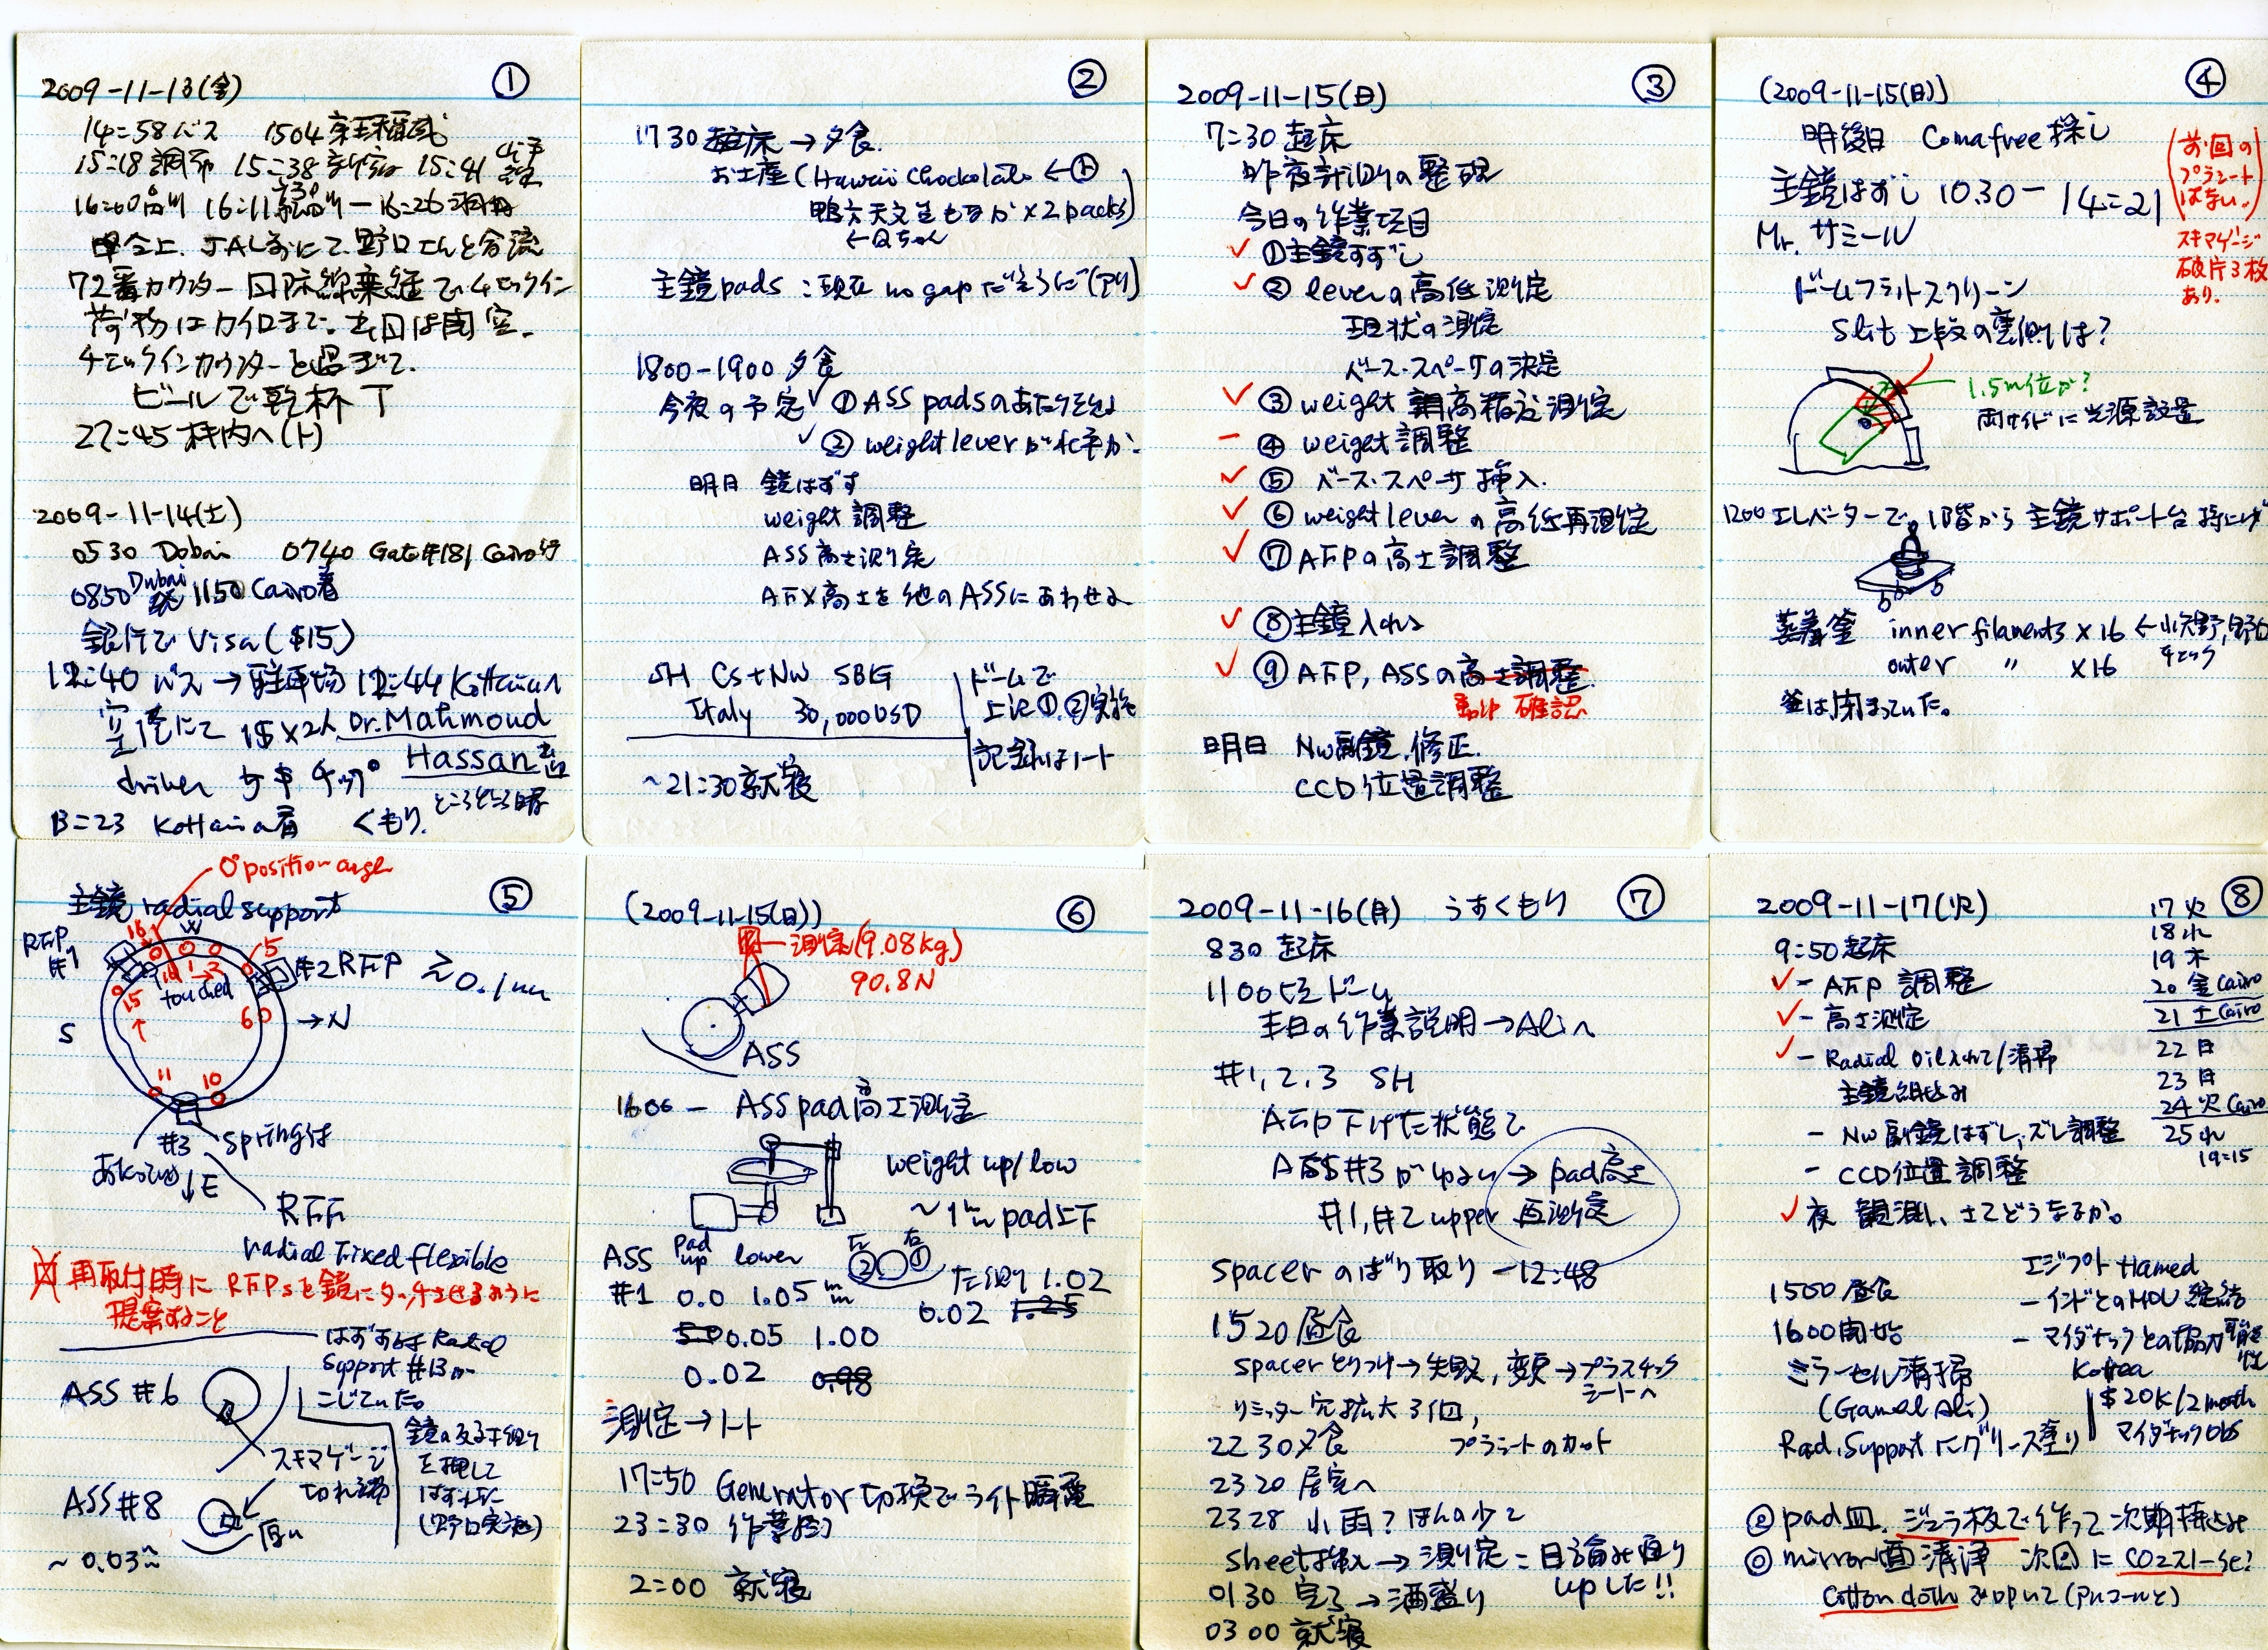 ①
2009-11-13(金)
14=58 バス 1504 京王稲城
15=18 調布 15=38 新宿 15=41
16=00 品川 16=11 - 16=26 羽田
JAL前にて 野口さんと合流
72番カウンター 国際線乗継でチェックイン
荷物はカイロまで。本日は関空。
チェックインカウンターを過ぎて、
ビールで乾杯
22=45 機内へ(ト)
2009-11-14(土)
0530 Dobai 0740 Gate#181 Cairo行
0850 Dubai発 1150 Cairo着
銀行で Visa ($15)
12:40 バス → 駐車場 12:44 Kottamiaへ
空港にて 1$×2人 Dr. Mahmoud
Hassan
driver チップ
13=23 Kottamia着 くもり。ところどころ晴
②
1730 起床 → 夕食
お土産 (Hawaii chockolate ←ト
鴨六天文生もなか×2packs)
←Qちゃん
主鏡pads : 現在 no gap だそうだ (アリ)
1800-1900 夕食
今夜の予定 ✓①ASS padsのあたりぐあい
✓② weight lever が水平か
明日 鏡はずす
weight 調整
ASS 高さ測定
AFX 高さを他のASSにあわせる
SH Cs+Nw SBIG
Italy 30,000USD
ドームで
上記①,②実施
記録はノート
~21:30 就寝
③
2009-11-15(日)
7:30 起床
昨夜計測の整理
今日の作業項目
✓ ①主鏡はずし
✓ ② leverの高低測定
現状の測定
ベース・スペーサの決定
✓ ③ weight 高精度測定
- ④ weight 調整
✓ ⑤ ベース・スペーサ挿入
✓ ⑥ weight lever の高低再測定
✓ ⑦ AFPの高さ調整
✓ ⑧主鏡入れる
✓ ⑨ AFP, ASSの高さ調整
確認
明日 Nw副鏡 修正
CCD 位置調整
④
(2009-11-15(日))
明後日 Comafree探し
主鏡はずし 10.30 - 14=21
(前回の
プラシート
はない。)
スキマゲージ
破片3枚
あり。
Mr. サミール
ドームフラットスクリーン
Slit 上段の裏側は?
1.5m位か?
両サイドに光源設置
1200 エレベーターで、1階から 主鏡サポート台 持上げ
蒸着釜 inner filaments ×16 ← 小矢野, 野口
チェック
outer 〃 ×16
釜は閉まっていた。
⑤
0°position angle
主鏡 radial support
RFP
#1
W
16
5
#2 RFP ≥0.1mm
16 1 2
touched
15
6
S
→N
11 10
#3 spring付
あたってる
↓E
RFF
radial Fixed flexible
再取付時に RFPsを鏡にタッチさせるように
提案すること
はずす時 Radial
support #13が
こじていた。
ASS #6
スキマゲージ
切れ端
鏡の反対側
を押して
はずした
(野口実施)
ASS #8
厚い
~0.03mm
⑥
(2009-11-15(日))
測定(9.08kg)
90.8N
ASS
1600 - ASS pad 高さ測定
weight up/low
~1mm pad上下
ASS pad up lower
左 右
② ①
#1 0.0 1.05mm 左側 1.02
0.02 1.25
0.05 1.00
0.02 0.98
測定→ノート
17=50 Generator 切換でライト瞬電
23=30 作業終了
2=00 就寝
⑦
2009-11-16(月) うすくもり
830 起床
1100 ドーム
本日の作業説明→Aliへ
#1, 2, 3 SH
AFP下げた状態で
ASS#3 がゆるい → pad高さ
#1, #2 upper 再測定
spacer のばり取り -12:48
1520 昼食
spacer とりつけ→失敗, 変更→プラスチック
シートへ
リミッター穴拡大 3個,
2230 夕食 プラシートのカット
2320 居室へ
2328 小雨? ほんの少し
sheet挿入 → 測定 = 目論み通り
upした!!
0130 完了 → 酒盛り
0300 就寝
⑧
2009-11-17(火)
9:50 起床
✓ - AFP 調整
✓ - 高さ測定
✓ - Radial Oil入れて/清掃
主鏡組込み
- Nw 副鏡はずし, ズレ調整
- CCD位置調整
✓ 夜 観測、さてどうなるか。
17 火
18 水
19 木
20 金 Cairo
21 土 Cairo
22 日
23 日
24 火 Cairo
25 水
19=15
1500 昼食
1600 開始
ミラーセル清掃
(Gamal Ali)
Rad. Support にグリース塗り
エジプト Hamed
- インドとのMOU 締結
- マイダナックとの協力可能性
Korea
$20K/2month
マイダナックObs
◎ pad皿、ジュラ板で作って次期持込み
◎ mirror面清浄 次回に CO2スノーSet?
Cotton cloth でOPいて(アルコールと)